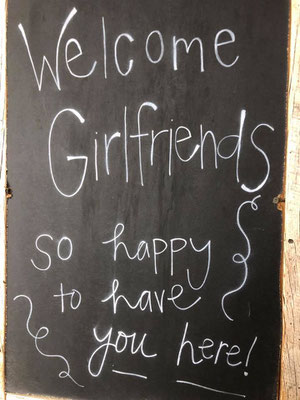 Welcome
Girlfriends
so happy
to have
you here!